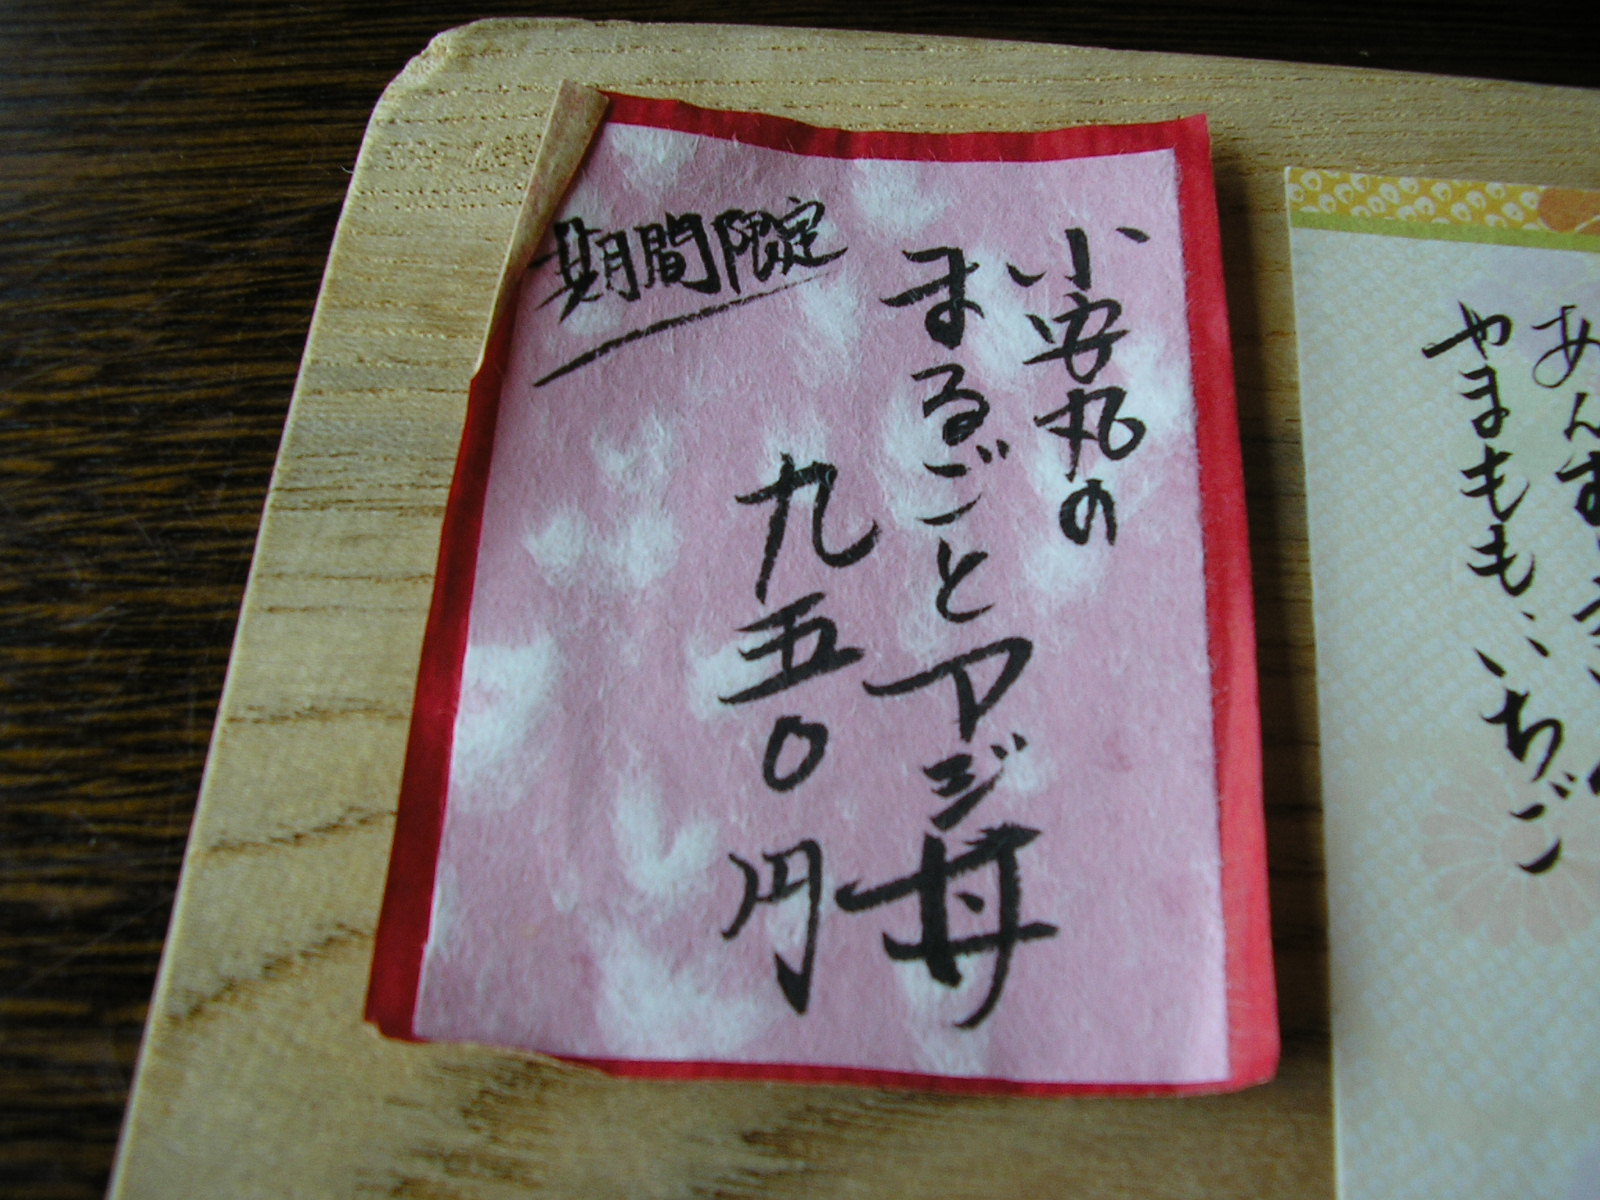 小安丸の
まるごとアジ丼
九五〇円
期間限定
あんず
やまもも、いちご